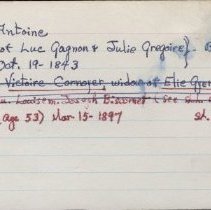 Antoine
of Luc Gagnon & Julie Gregoire}. B
Oct. 19-1843
Victoire Cornoyer, widow of Elie Gre
Louise m. Joseph Bissonnet (see
(age 53) Mar-15-1897 St.